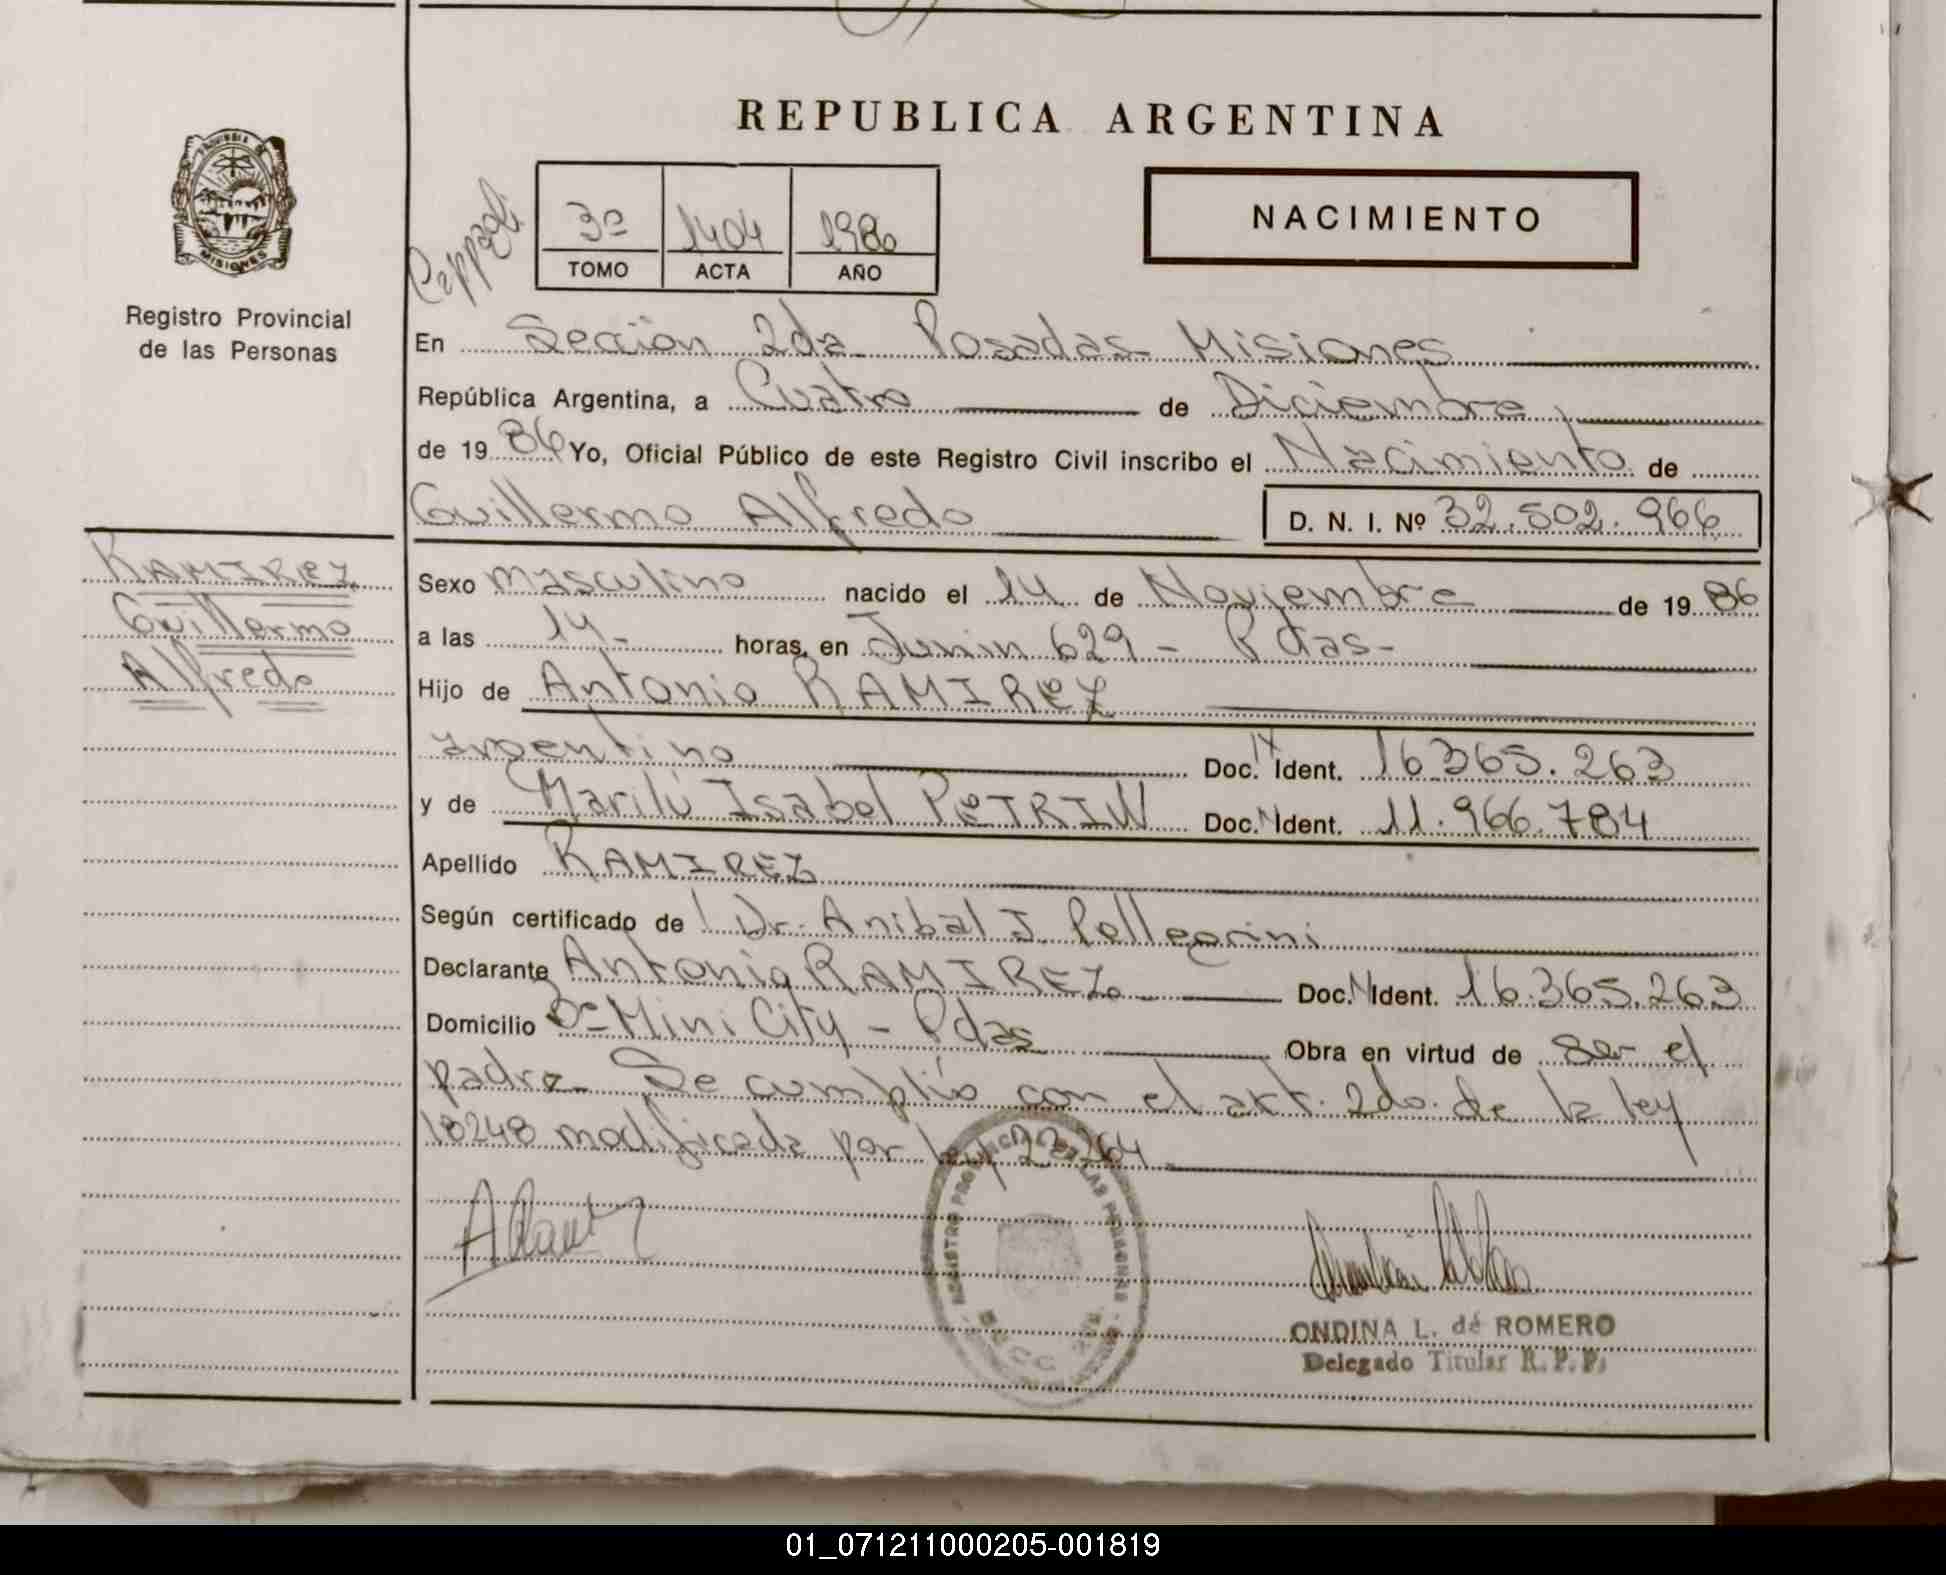 REPUBLICA ARGENTINA
PROVINCIA DE
MISIONES
Registro Provincial
de las Personas
3º 1404 1986
TOMO ACTA AÑO
NACIMIENTO
En Sección 2da Posadas Misiones
República Argentina, a Cuatro de Diciembre
de 1986 Yo, Oficial Público de este Registro Civil inscribo el Nacimiento de
Guillermo Alfredo D. N. I. Nº 32.502.966
RAMIREZ
Guillermo
Alfredo
Sexo masculino nacido el 14 de Noviembre de 1986
a las 14- horas, en Junin 629 - Pdas-
Hijo de Antonio RAMIREZ
argentino Doc. Ident. 16365.263
y de Marilú Isabel Doc. Ident. 11.966.784
Apellido RAMIREZ
Según certificado de Dr. Anibal J. Pellegrini
Declarante Antonio RAMIREZ Doc. Ident. 16.365.263
Domicilio Bº Mini City - Pdas Obra en virtud de ser el
padre. Se cumplió con el art. 2do. de la ley
18248 modificada por ley 23264
REGISTRO PROVINCIAL DE LAS PERSONAS
SECC 2da
ONDINA L. de ROMERO
Delegado Titular R. P. P.
01_071211000205-001819